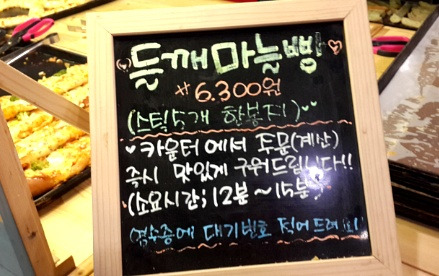 들깨마늘빵
6.300원
(스틱5개 한봉지)
카운터에서 주문(계산)
즉시 맛있게 구워드립니다!!
(소요시간; 12분~15분)
영수증에 대기번호 적어드려요